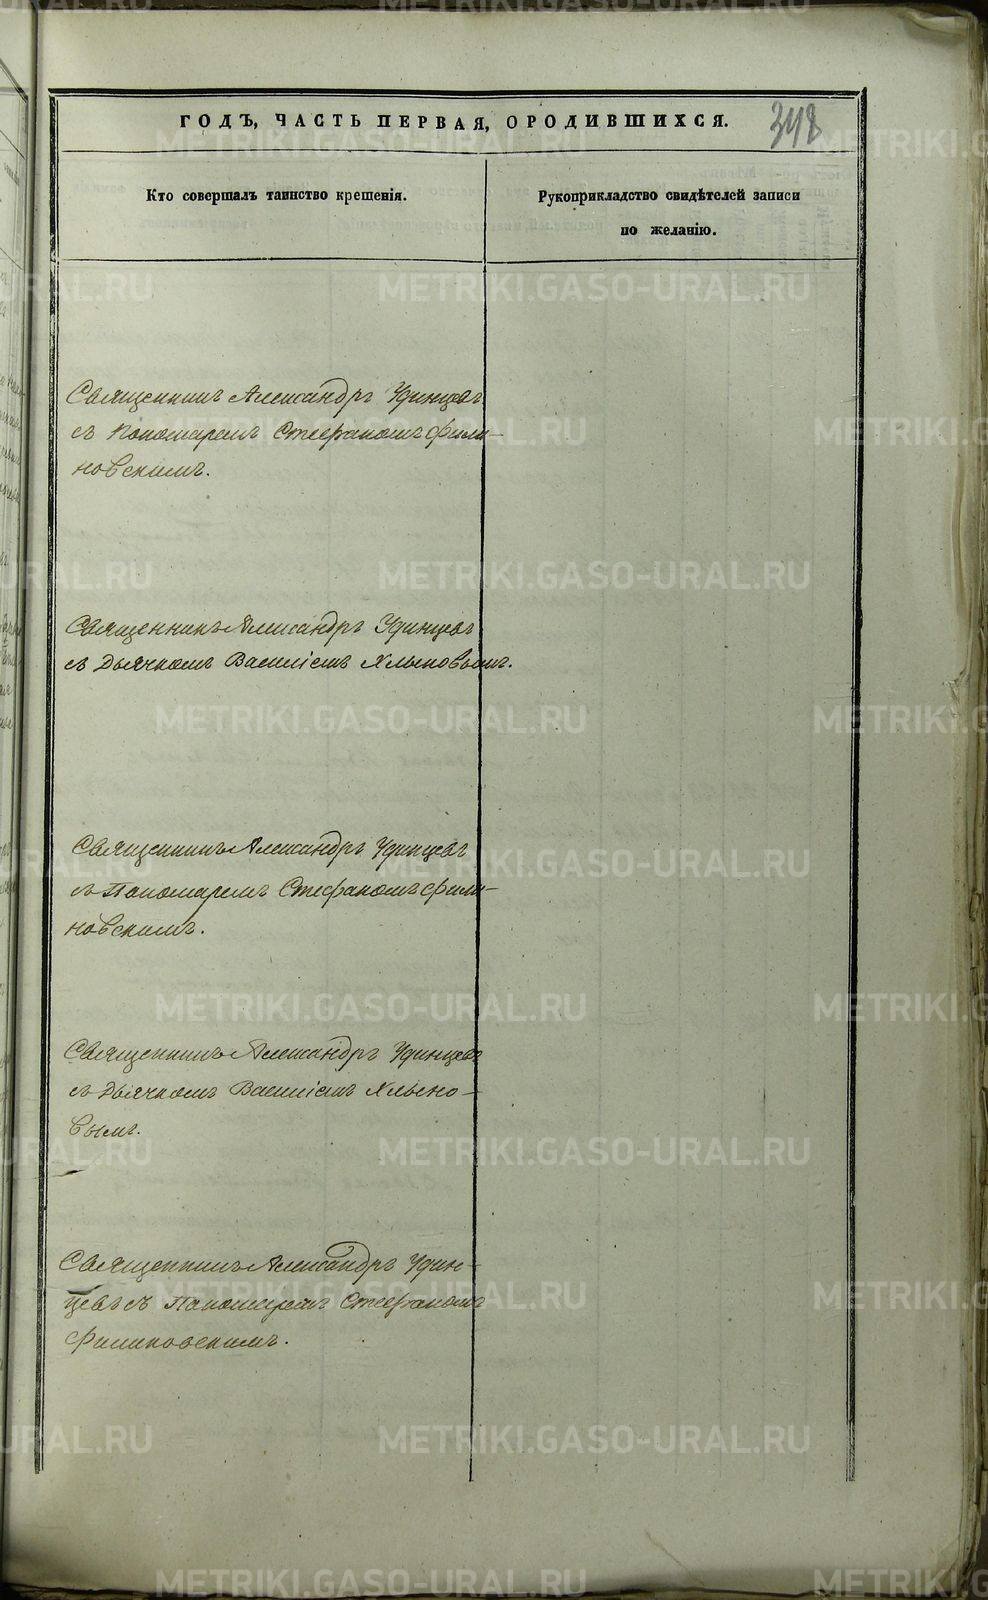 ГОДЪ, ЧАСТЬ ПЕРВАЯ, О РОДИВШИХСЯ.
348
Кто совершалъ таинство крещенія.
Рукоприкладство свидѣтелей записи
по желанію.
Священникъ Александръ Удинцевъ
съ Пономаремъ Стефаномъ Фили-
новскимъ.
Священникъ Александръ Удинцевъ
съ Дьячкомъ Василіемъ Хлыновымъ.
Священникъ Александръ Удинцевъ
съ Пономаремъ Стефаномъ Фили-
новскимъ.
Священникъ Александръ Удинцевъ
съ Дьячкомъ Василіемъ Хлыно-
вымъ.
Священникъ Александръ Удин-
цевъ съ Пономаремъ Стефаномъ
Филиновскимъ.
METRIKI.GASO-URAL.RU